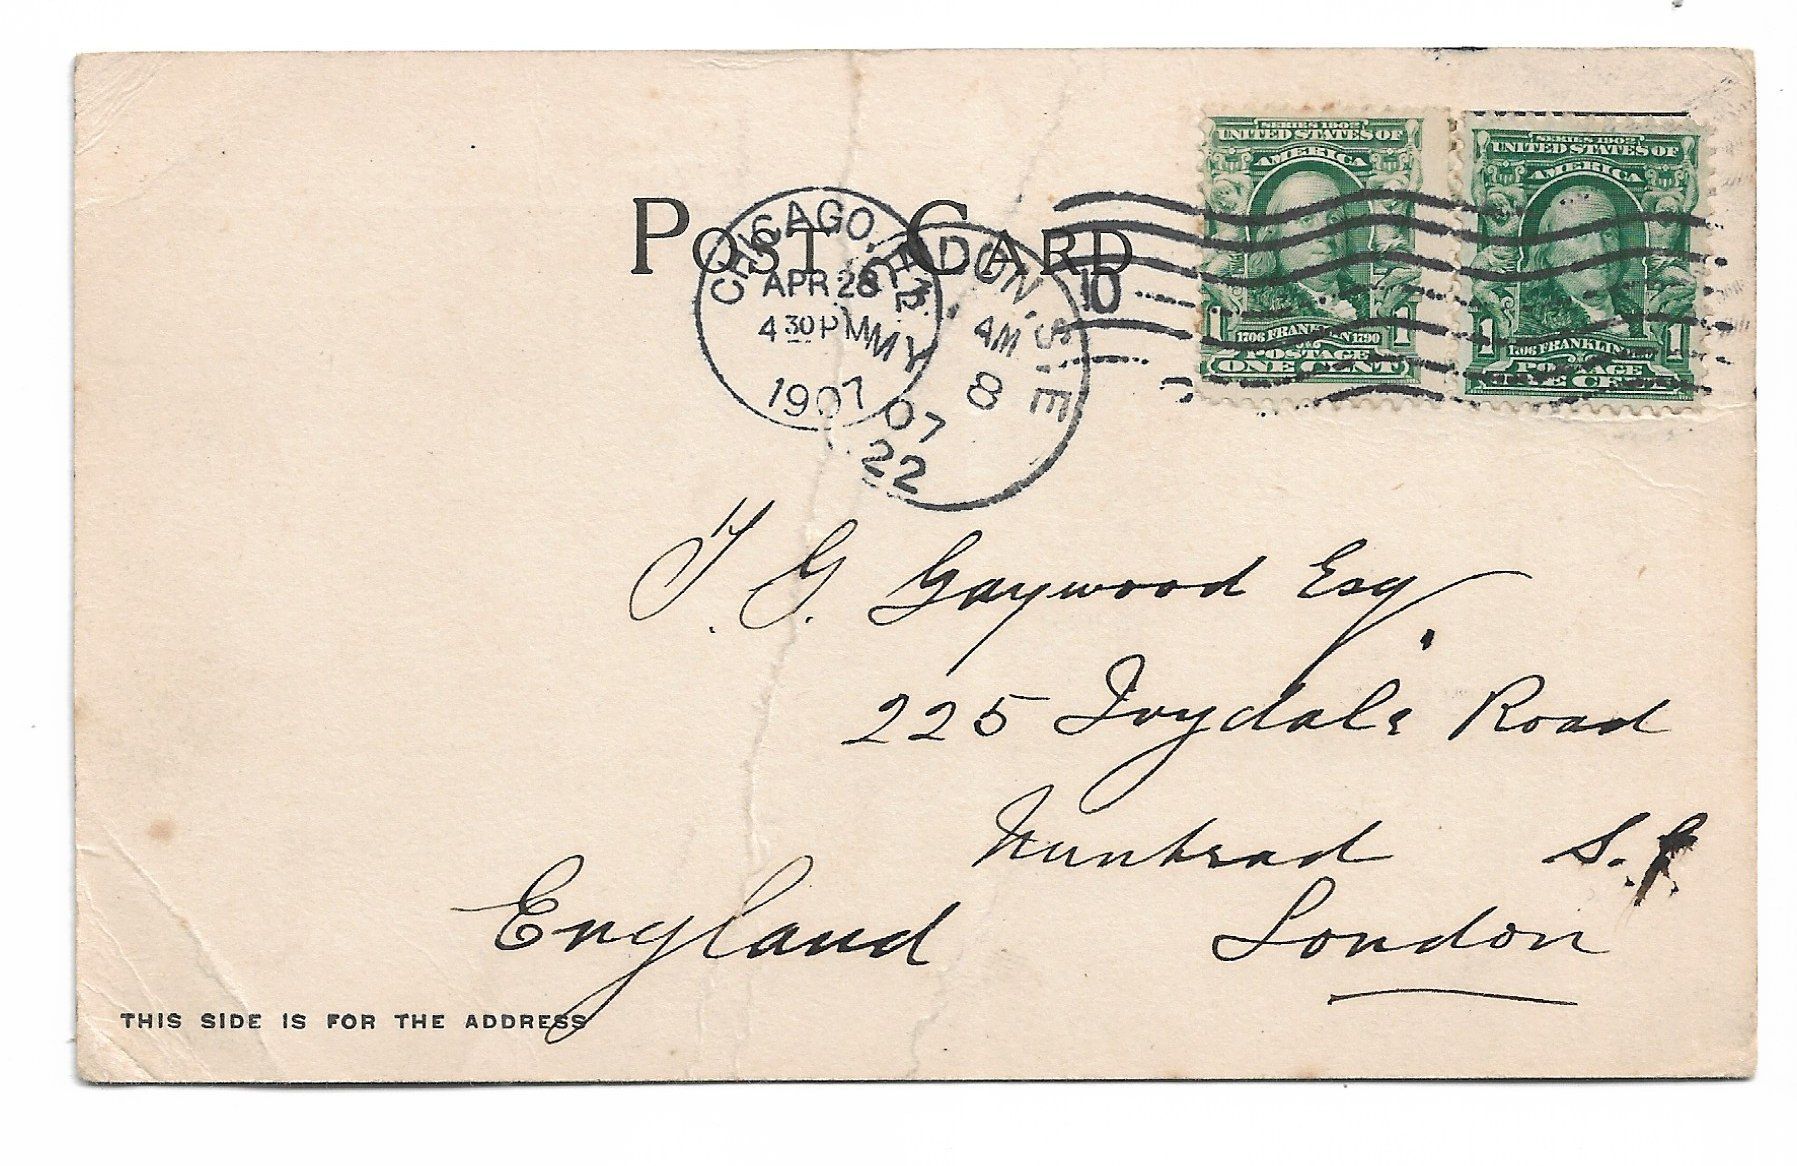 POST CARD
CHICAGO, ILL.
APR 28
4 30 PM
1907
LONDON. S.E
4 AM
MY 8
07
22
10
SERIES 1902
UNITED STATES OF
AMERICA
1 1706 FRANKLIN 1790 1
POSTAGE
ONE CENT
SERIES 1902
UNITED STATES OF
AMERICA
1 1706 FRANKLIN 1
POSTAGE
ONE CENT
T. G. Gaywood Esq
225 Ivydale Road
Nunhead S.E.
England London
THIS SIDE IS FOR THE ADDRESS